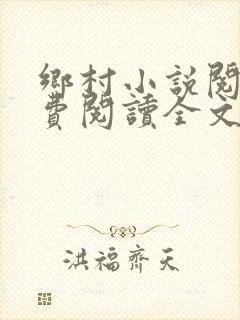 鄉村小説閱
費閱讀全文
洪福齊天